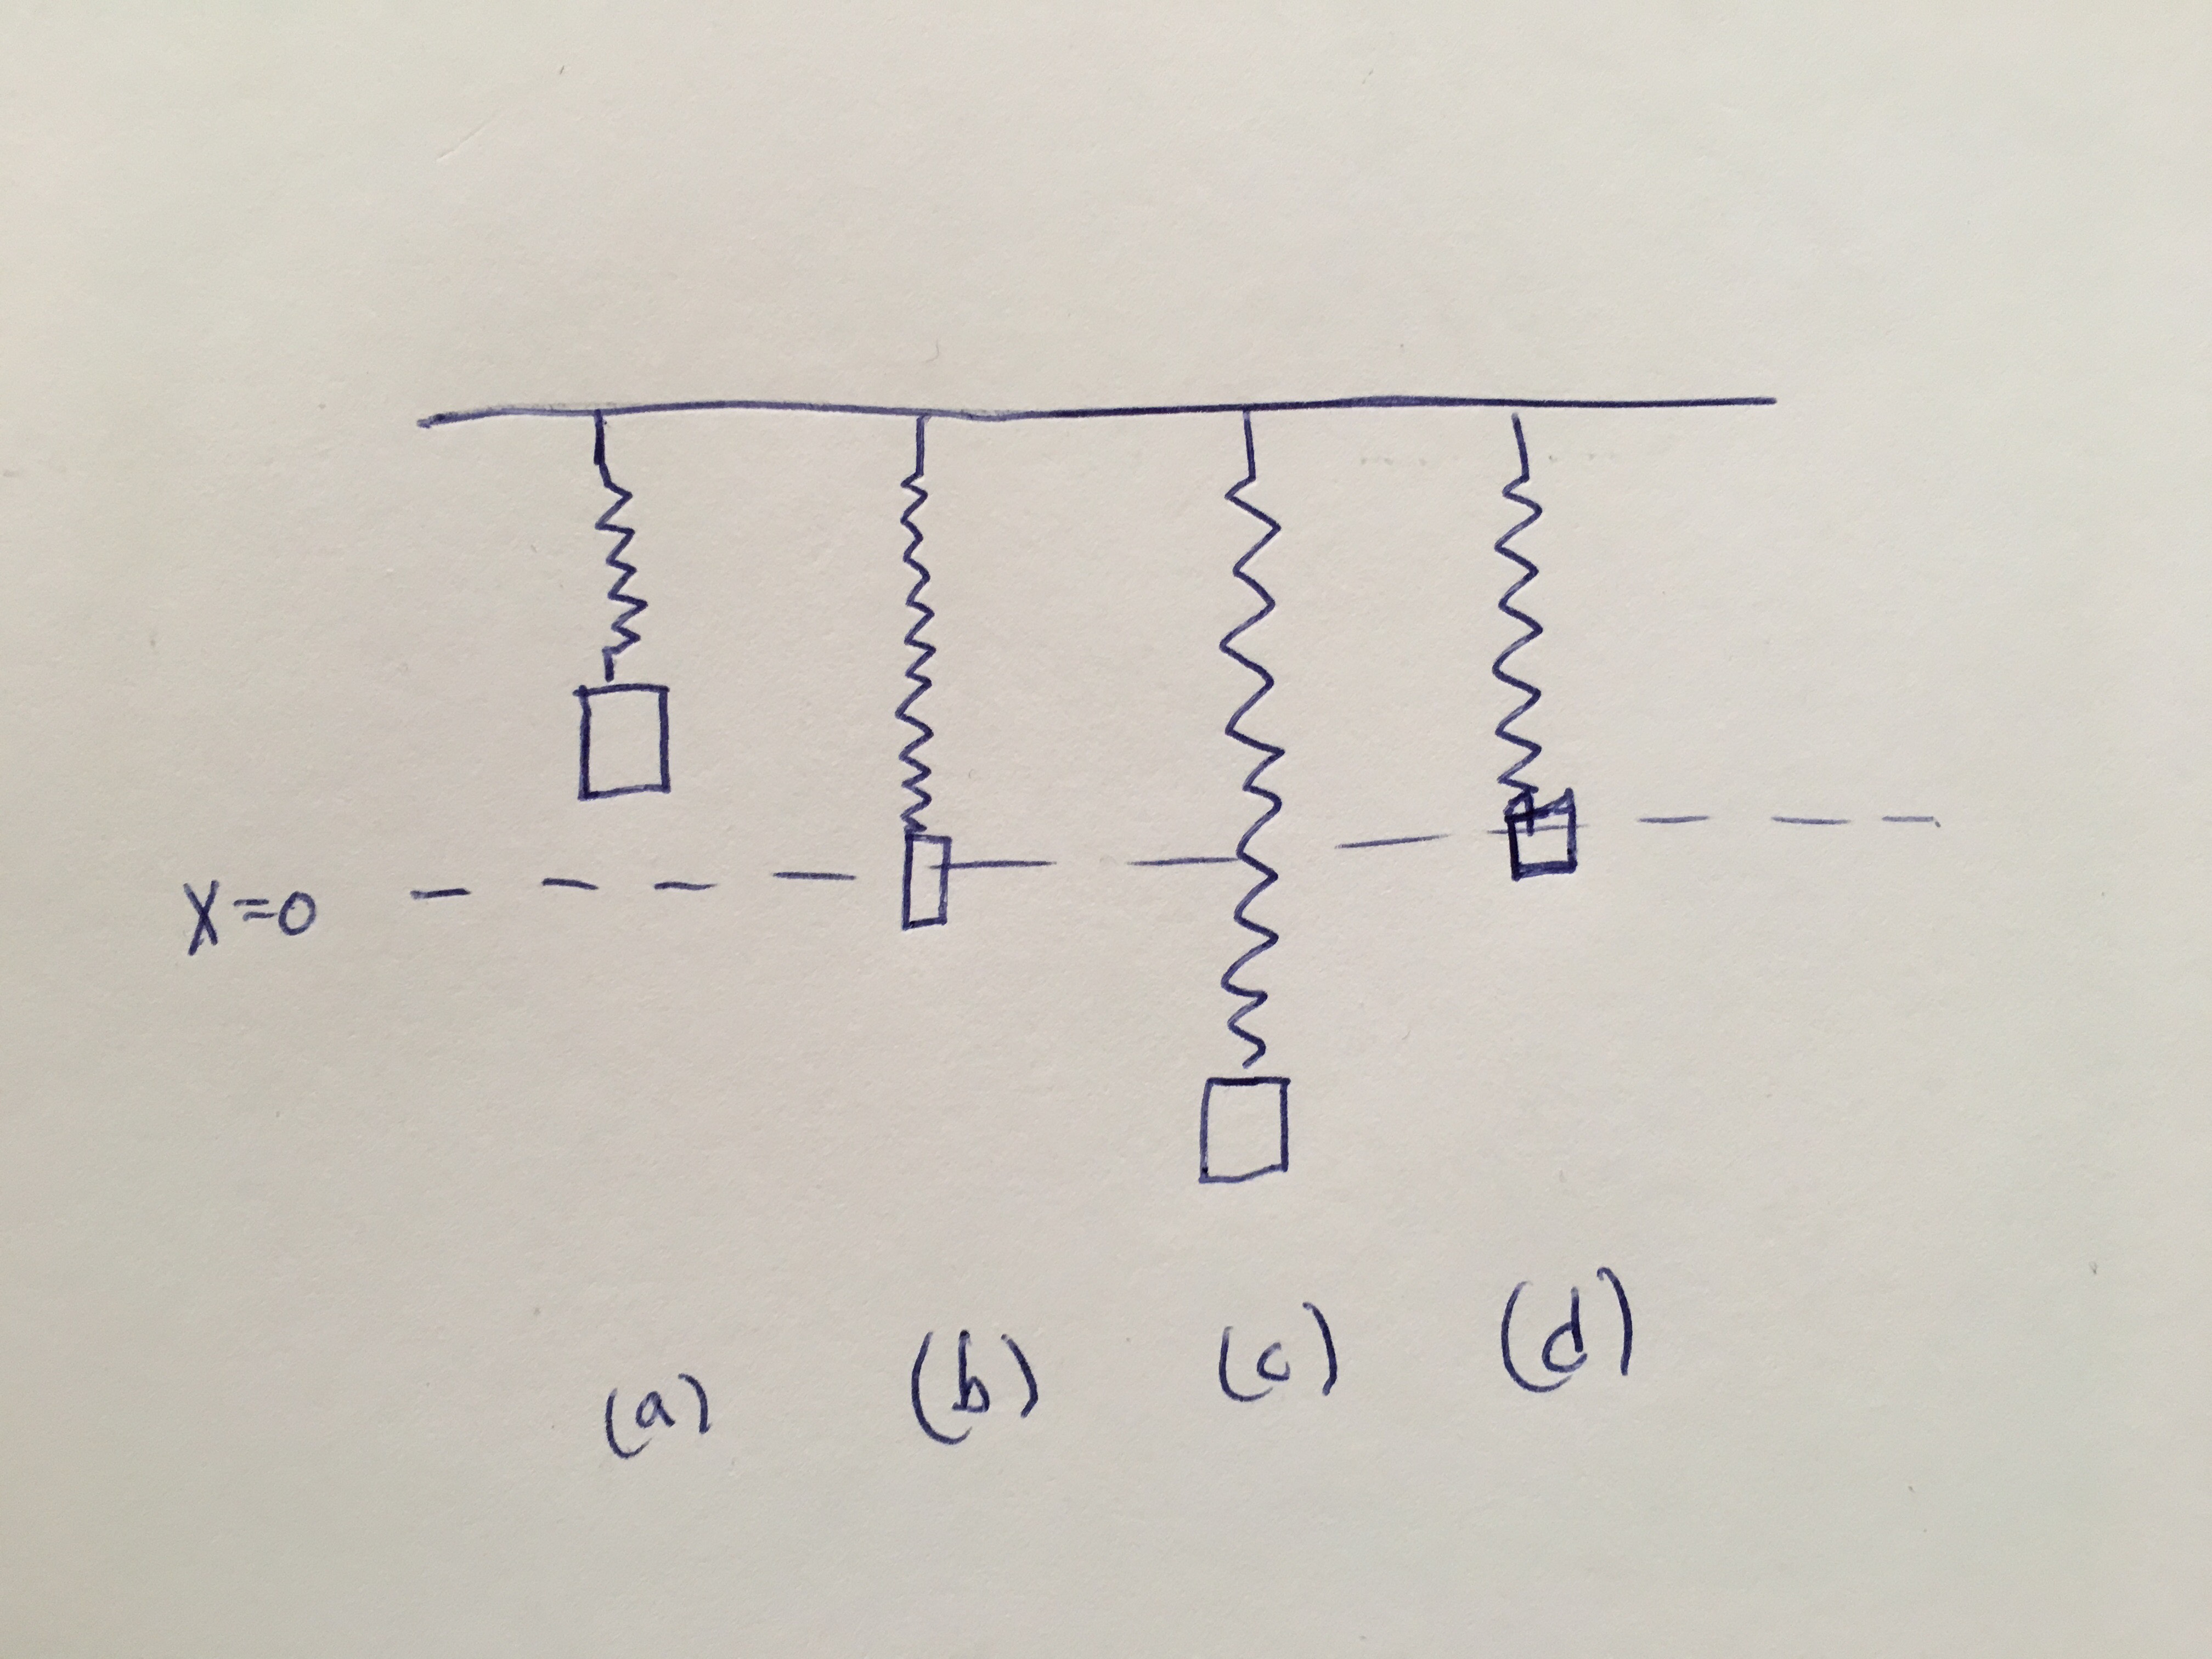 X=0
(a) (b) (c) (d)